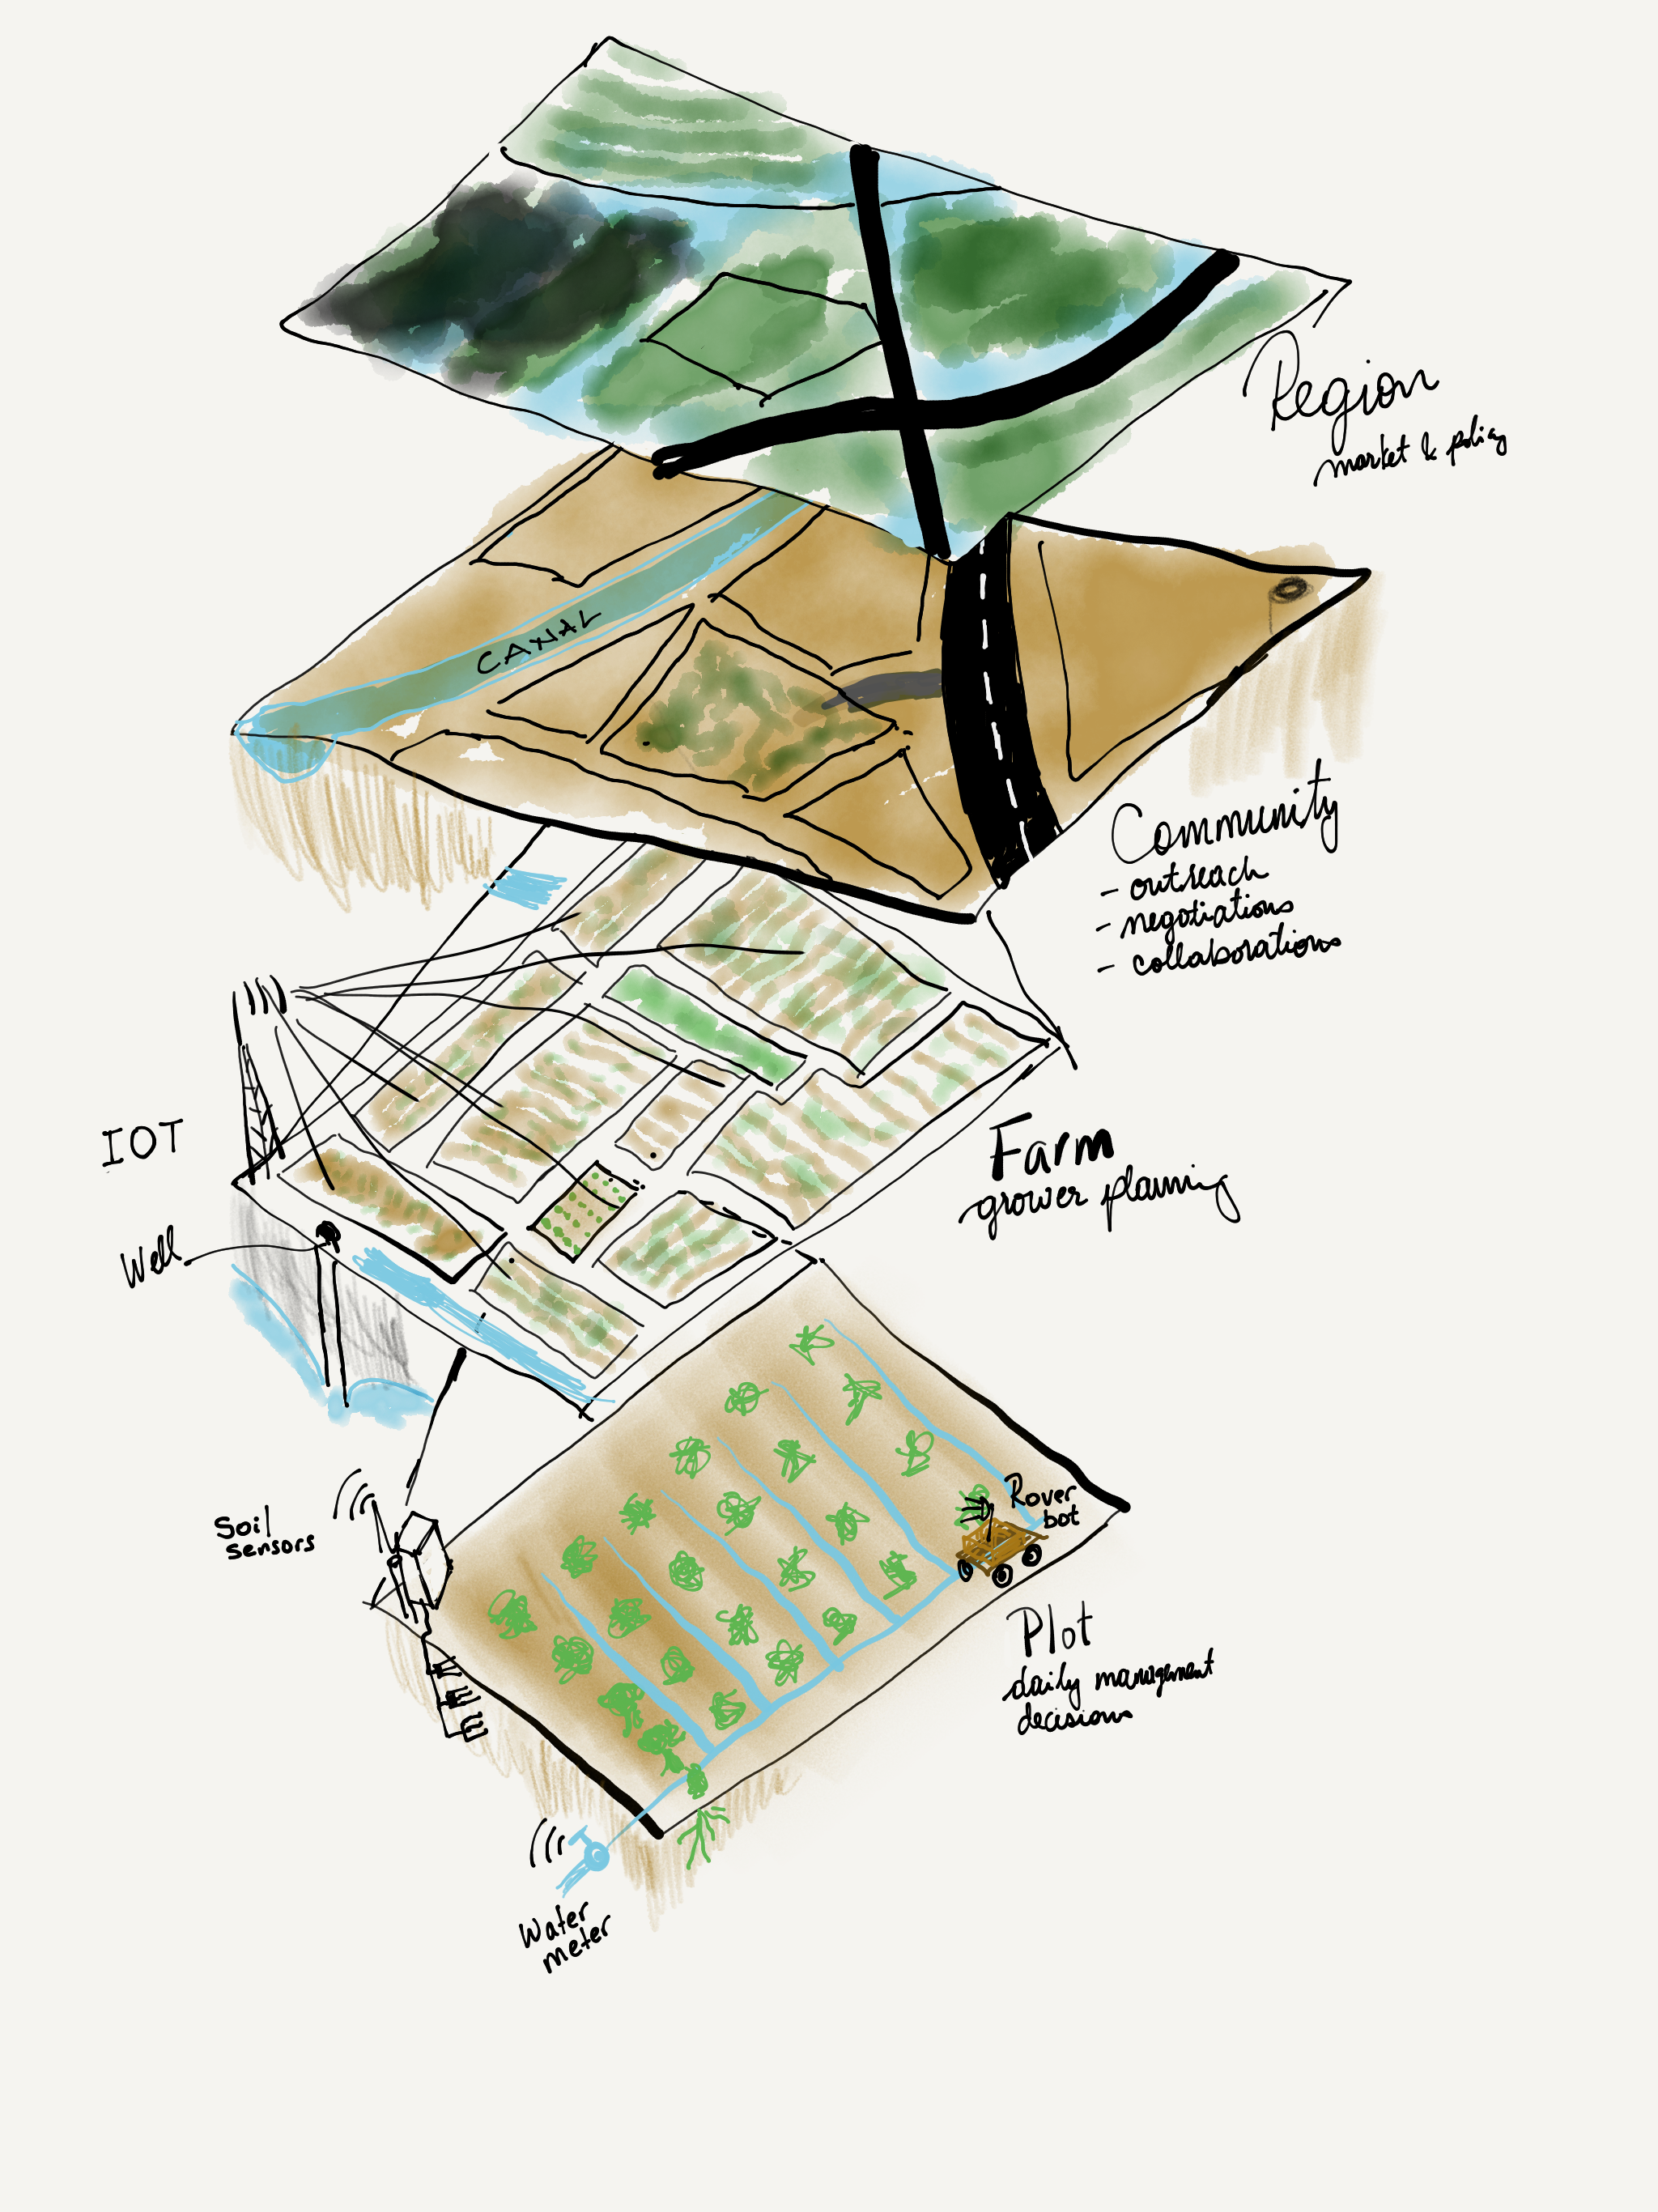 Region
market & policy
CANAL
Community
- outreach
- negotiations
- collaborations
IOT
Farm
grower planning
Well
Soil
sensors
Rover
bot
Plot
daily management
decisions
Water
meter